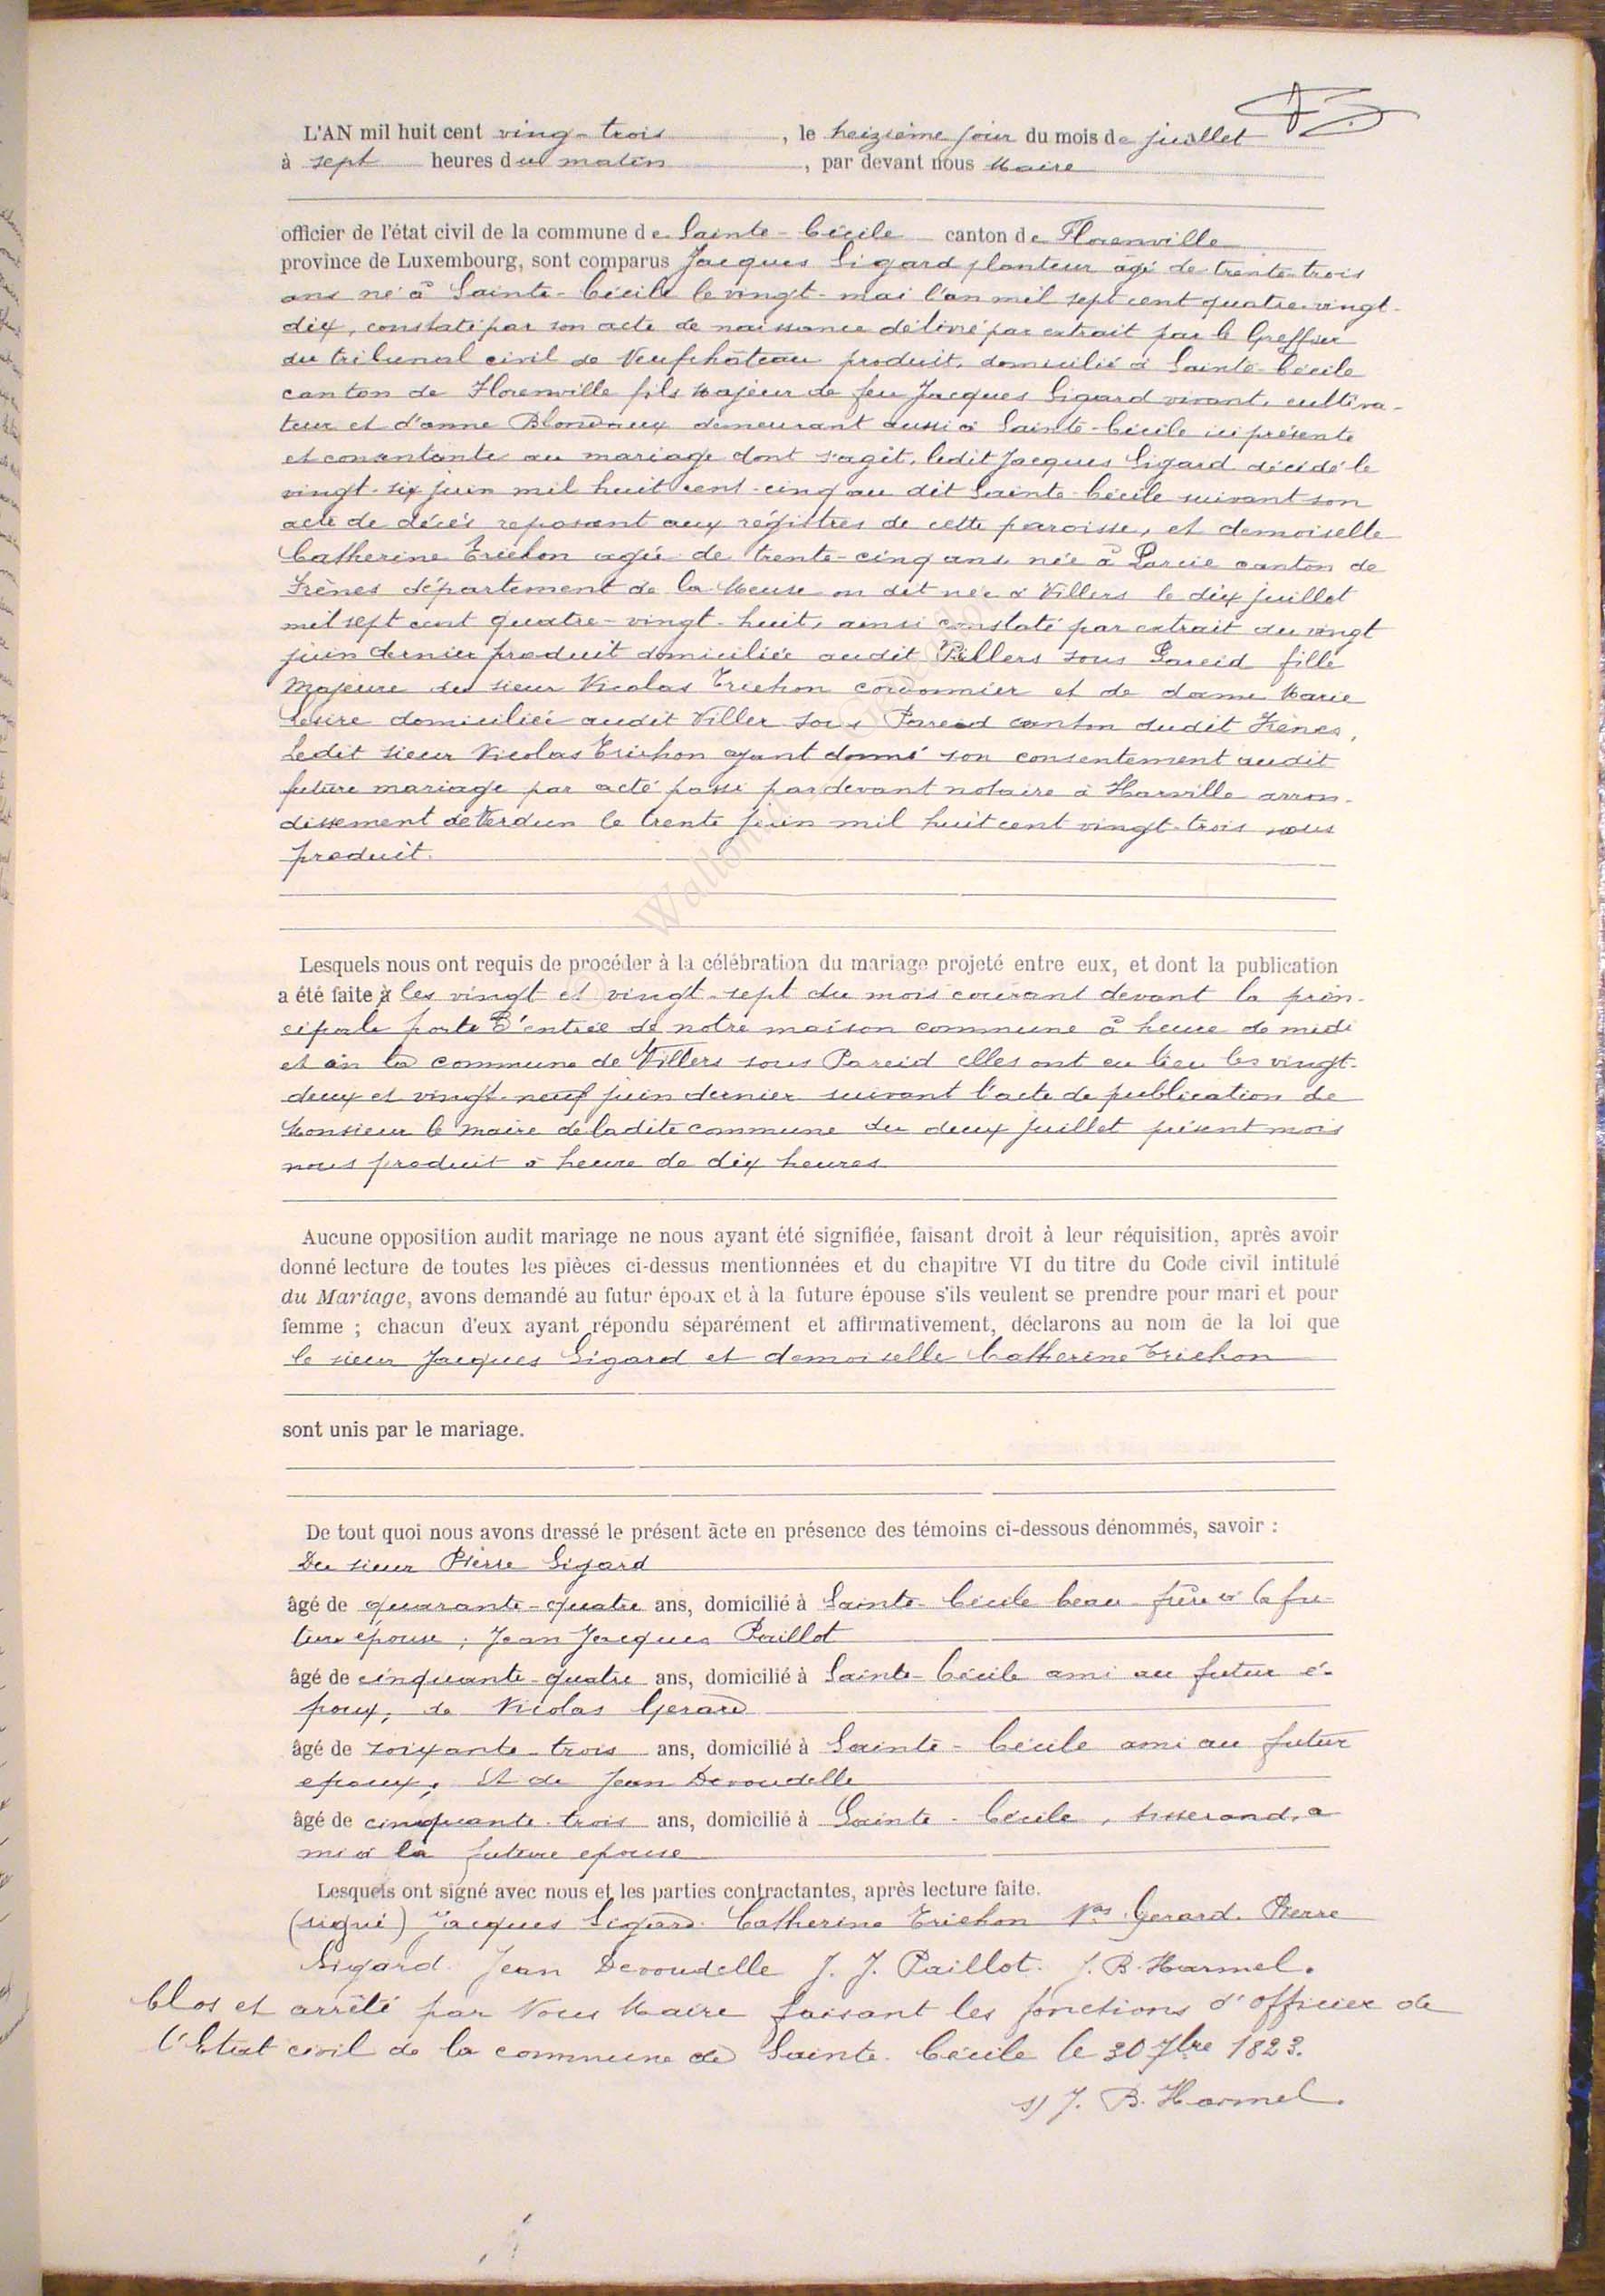 L'AN mil huit cent ving-trois, le heizième jour du mois de juillet
à sept heures du matin, par devant nous Maire
officier de l'état civil de la commune de Sainte-Cécile canton de Florenville
province de Luxembourg, sont comparus Jacques Sigard planteur âgé de trente-trois
ans né à Sainte-Cécile le vingt-mai l'an mil sept cent quatre-vingt-
dix, constaté par son acte de naissance délivré par extrait par le Greffier
du tribunal civil de Neufchâteau produit, domicilié à Sainte-Cécile
canton de Florenville fils majeur de feu Jacques Sigard vivant, cultiva-
teur et d'anne Blondaux demeurant aussi à Sainte-Cécile ici présente
et consentante au mariage dont s'agit, ledit Jacques Sigard décédé le
vingt-six juin mil huit cent-cinq au dit Sainte-Cécile suivant son
acte de décés reposant aux régistres de cette paroisse, et demoiselle
Catherine Trichon agée de trente-cinq ans née à canton de
Frènes département de la Meuse on dit née à Villers le dix juillet
mil sept cent quatre-vingt-huit, ainsi constaté par extrait du vingt
juin dernier produit domiciliée audit Villers sous Pareid fille
Majeure du sieur Nicolas Trichon cordonnier et de dame Marie
Lesire domiciliée audit Viller sous Pareid canton dudit Frènes,
Ledit sieur Nicolas Trichon ayant donné son consentement audit
future mariage par acté passé pardevant notaire à Harville arron-
dissement de Verdun le trente juin mil huit cent vingt-trois nous
produit.
Lesquels nous ont requis de procéder à la célébration du mariage projeté entre eux, et dont la publication
a été faite à les vingt et vingt-sept du mois courant devant la prin-
cipale porte d'entrée de notre maison commune à heure de midi
et en la commune de Villers sous Pareid elles ont eu lieu les vingt-
deux et vingt-neuf juin dernier suivant l'acte de publication de
Monsieur le maire de ladite commune du deux juillet présent mois
nous produit à heure de dix heures
Aucune opposition audit mariage ne nous ayant été signifiée, faisant droit à leur réquisition, après avoir
donné lecture de toutes les pièces ci-dessus mentionnées et du chapitre VI du titre du Code civil intitulé
du Mariage, avons demandé au futur époux et à la future épouse s'ils veulent se prendre pour mari et pour
femme ; chacun d'eux ayant répondu séparément et affirmativement, déclarons au nom de la loi que
le sieur Jacques Sigard et demoiselle Catherine Trichon
sont unis par le mariage.
De tout quoi nous avons dressé le présent acte en présence des témoins ci-dessous dénommés, savoir :
Du sieur Pierre Sigard
âgé de quarante-quatre ans, domicilié à Sainte-Cécile beau-frère à la fu-
ture épouse ; Jean Jacques Paillot
âgé de cinquante-quatre ans, domicilié à Sainte-Cécile ami au futur é-
poux, de Nicolas Gerard
âgé de soixante-trois ans, domicilié à Sainte-Cécile ami au futur
epoux, Et de Jean Devoudelle
âgé de cinquante-trois ans, domicilié à Sainte-Cécile, tisserand, a
mi à la future epouse
Lesquels ont signé avec nous et les parties contractantes, après lecture faite.
(signé) Jacques Sigard. Catherine Trichon Nas Gerard. Pierre
Sigard. Jean Devoudelle J. J. Paillot. J. B. Harmel.
Clos et arrêté par Nous Maire faisant les fonctions d'officier de
l'Etat civil de la commune de Sainte-Cécile le 30 7bre 1823.
s/ J. B. Harmel.